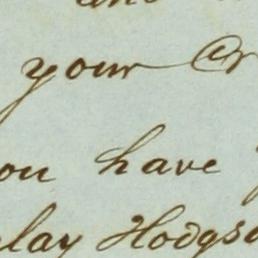 your Cr
ou have
lay Hodgso